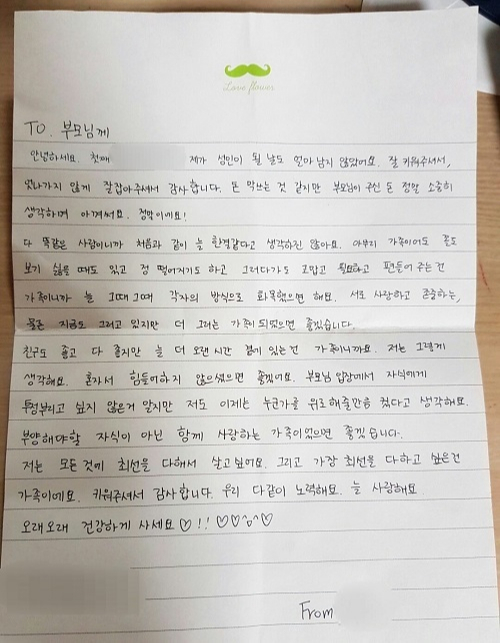 Love flower
TO. 부모님께
안녕하세요. 첫째 제가 성인이 될 날도 얼마 남지 않았어요. 잘 키워주셔서,
엇나가지 않게 잘잡아주셔서 감사합니다. 돈 막쓰는 것 같지만 부모님이 주신 돈 정말 소중히
생각하며 아껴써요. 정말이에요!
다 똑같은 사람이니까 처음과 같이 늘 한결같다고 생각하진 않아요. 아무리 가족이어도 꼴도
보기 싫을 때도 있고 정 떨어지기도 하고 그러다가도 고맙고 필요하고 편들어 주는건
가족이니까 늘 그때그때 각자의 방식으로 화목했으면 해요. 서로 사랑하고 존중하는,
물론 지금도 그러고 있지만 더 그러는 가족이 되었으면 좋겠습니다.
친구도 좋고 다 좋지만 늘 더 오랜 시간 곁에 있는건 가족이니까요. 저는 그렇게
생각해요. 혼자서 힘들어하지 않으셨으면 좋겠어요. 부모님 입장에서 자식에게
투덩부리고 싶지 않은거 알지만 저도 이제는 누군가를 위로해줄만큼 컸다고 생각해요.
부양해야할 자식이 아닌 함께 사랑하는 가족이었으면 좋겠습니다.
저는 모든것에 최선을 다해서 살고싶어요. 그리고 가장 최선을 다하고 싶은건
가족이에요. 키워주셔서 감사합니다. 우리 다같이 노력해요. 늘 사랑해요
오래오래 건강하게 사세요♡!! ♡♡^^♡
From